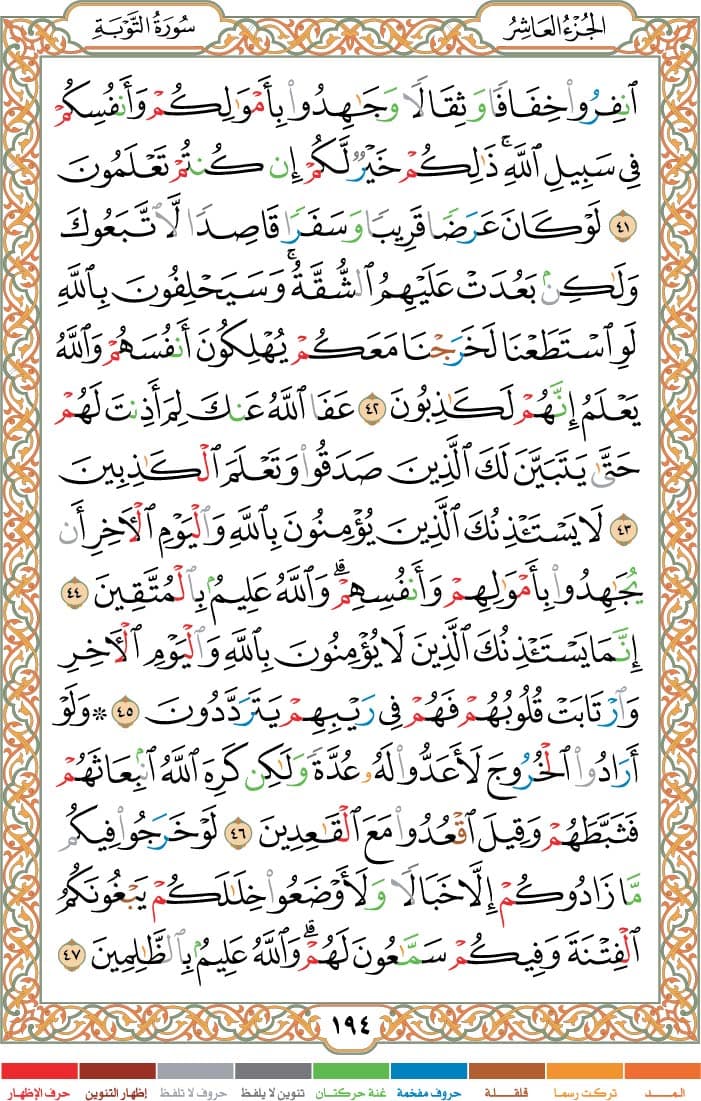 الجزء العاشر
سورة التوبة
ٱنفِرُوا۟ خِفَافًا وَثِقَالًا وَجَٰهِدُوا۟ بِأَمْوَٰلِكُمْ وَأَنفُسِكُمْ
فِى سَبِيلِ ٱللَّهِ ۚ ذَٰلِكُمْ خَيْرٌ لَّكُمْ إِن كُنتُمْ تَعْلَمُونَ
٤١ لَوْ كَانَ عَرَضًا قَرِيبًا وَسَفَرًا قَاصِدًا لَّٱتَّبَعُوكَ
وَلَٰكِنۢ بَعُدَتْ عَلَيْهِمُ ٱلشُّقَّةُ ۚ وَسَيَحْلِفُونَ بِٱللَّهِ
لَوِ ٱسْتَطَعْنَا لَخَرَجْنَا مَعَكُمْ يُهْلِكُونَ أَنفُسَهُمْ وَٱللَّهُ
يَعْلَمُ إِنَّهُمْ لَكَٰذِبُونَ ٤٢ عَفَا ٱللَّهُ عَنكَ لِمَ أَذِنتَ لَهُمْ
حَتَّىٰ يَتَبَيَّنَ لَكَ ٱلَّذِينَ صَدَقُوا۟ وَتَعْلَمَ ٱلْكَٰذِبِينَ
٤٣ لَا يَسْتَـْٔذِنُكَ ٱلَّذِينَ يُؤْمِنُونَ بِٱللَّهِ وَٱلْيَوْمِ ٱلْـَٔاخِرِ أَن
يُجَٰهِدُوا۟ بِأَمْوَٰلِهِمْ وَأَنفُسِهِمْ ۗ وَٱللَّهُ عَلِيمٌۢ بِٱلْمُتَّقِينَ ٤٤
إِنَّمَا يَسْتَـْٔذِنُكَ ٱلَّذِينَ لَا يُؤْمِنُونَ بِٱللَّهِ وَٱلْيَوْمِ ٱلْـَٔاخِرِ
وَٱرْتَابَتْ قُلُوبُهُمْ فَهُمْ فِى رَيْبِهِمْ يَتَرَدَّدُونَ ٤٥ ۞ وَلَوْ
أَرَادُوا۟ ٱلْخُرُوجَ لَأَعَدُّوا۟ لَهُۥ عُدَّةً وَلَٰكِن كَرِهَ ٱللَّهُ ٱنۢبِعَاثَهُمْ
فَثَبَّطَهُمْ وَقِيلَ ٱقْعُدُوا۟ مَعَ ٱلْقَٰعِدِينَ ٤٦ لَوْ خَرَجُوا۟ فِيكُم
مَّا زَادُوكُمْ إِلَّا خَبَالًا وَلَأَوْضَعُوا۟ خِلَٰلَكُمْ يَبْغُونَكُمُ
ٱلْفِتْنَةَ وَفِيكُمْ سَمَّٰعُونَ لَهُمْ ۗ وَٱللَّهُ عَلِيمٌۢ بِٱلظَّٰلِمِينَ ٤٧
١٩٤
المـــد تركت رسما قلقلة حروف مفخمة غنة حركتان تنوين لا يلفظ حروف لا تلفظ إظهار التنوين حرف الإظهار